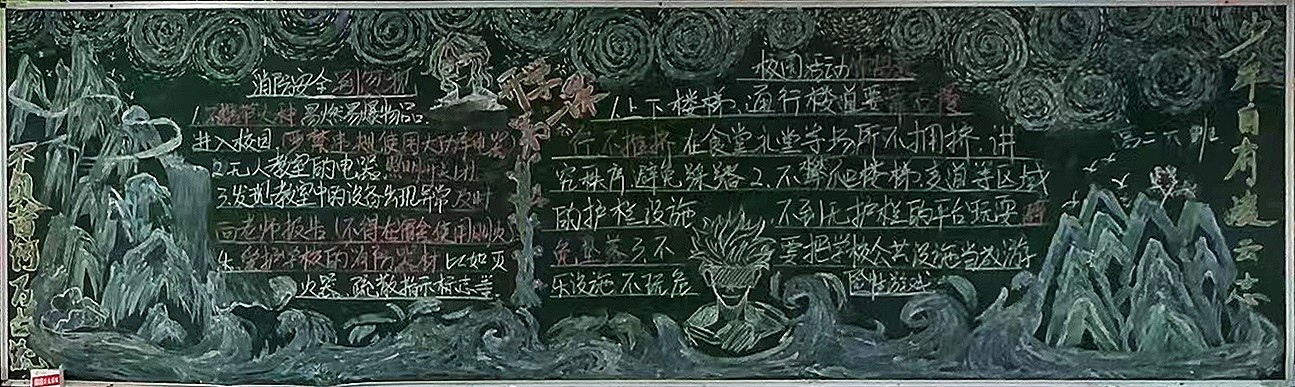 少年自有凌云志
高二六班
消防安全
1. 火种 易燃易爆物品
进入校园,严禁违规使用大功率电器
2.无人教室的电器
3.发现教室中的设备出现异常及时
向老师报告(不得在宿舍使用明火
4. 学校的消防器材 比如灭
火器、疏散指示标志等
校园活动
1.上下楼梯、通行楼道要靠右慢
行不推挤 在食堂礼堂等场所不拥挤、讲
究秩序,避免踩踏 2.不攀爬楼梯、走道等区域
的护栏设施 不到无护栏的平台玩耍
免坠落 3.不要把学校公共设施当成游
乐设施不玩危险性游戏